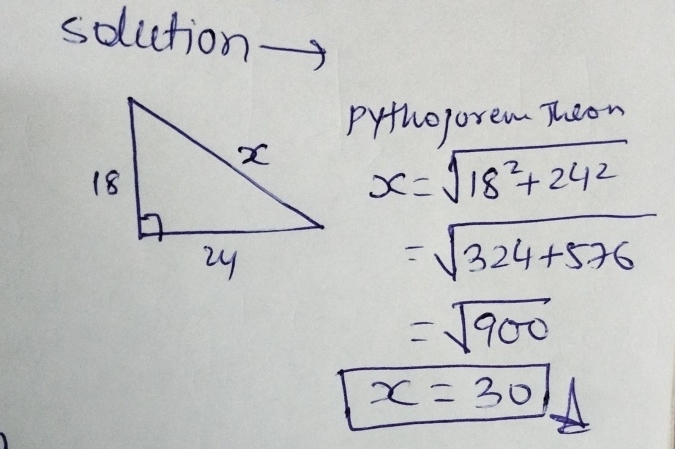 solution →
18
x
24
Pythogorem Theon
x = √18²+242
= √324+576
= √900
x = 30